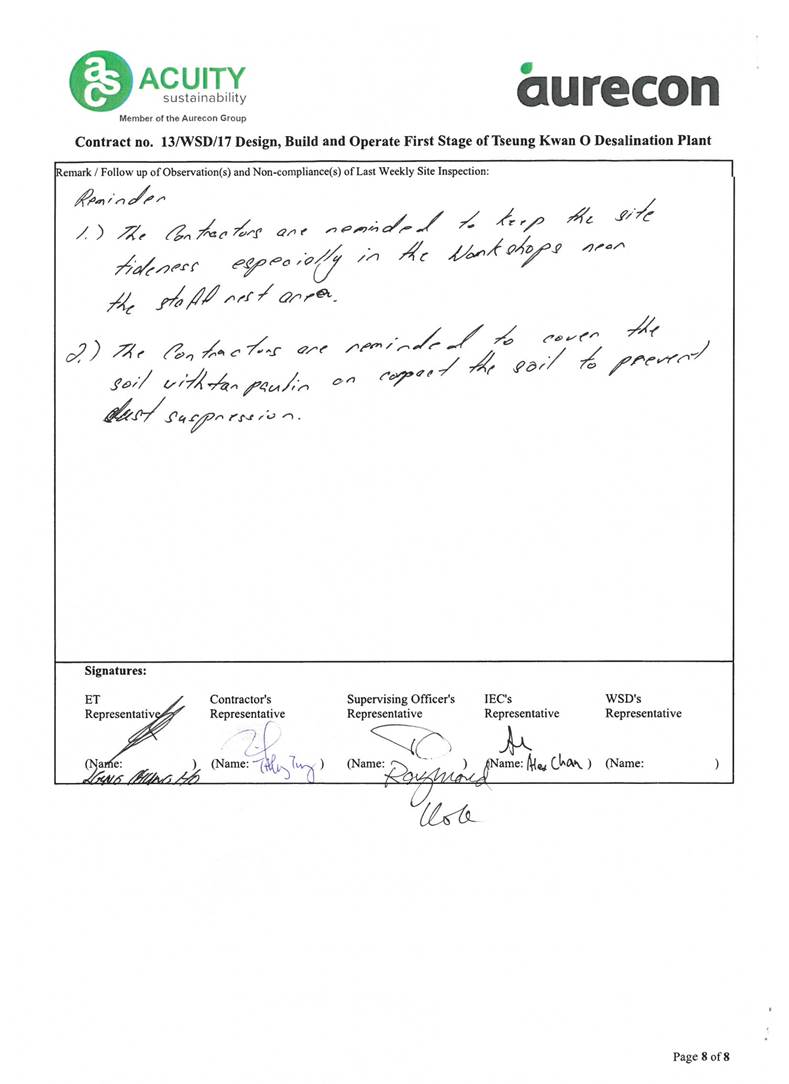 asc ACUITY
sustainability
Member of the Aurecon Group
aurecon
Contract no. 13/WSD/17 Design, Build and Operate First Stage of Tseung Kwan O Desalination Plant
Remark / Follow up of Observation(s) and Non-compliance(s) of Last Weekly Site Inspection:
Reminder
1.) The Contractors are reminded to keep the site
tideness especially in the Workshops near
the staff rest area.
2.) The Contractors are reminded to cover the
soil with tarpaulin or copact the soil to prevent
dust suspression.
Signatures:
ET
Representative
Contractor's
Representative
Supervising Officer's
Representative
IEC's
Representative
WSD's
Representative
(Name: )
(Name: )
(Name: Raymond )
(Name: Alex Chan )
(Name: )
Page 8 of 8